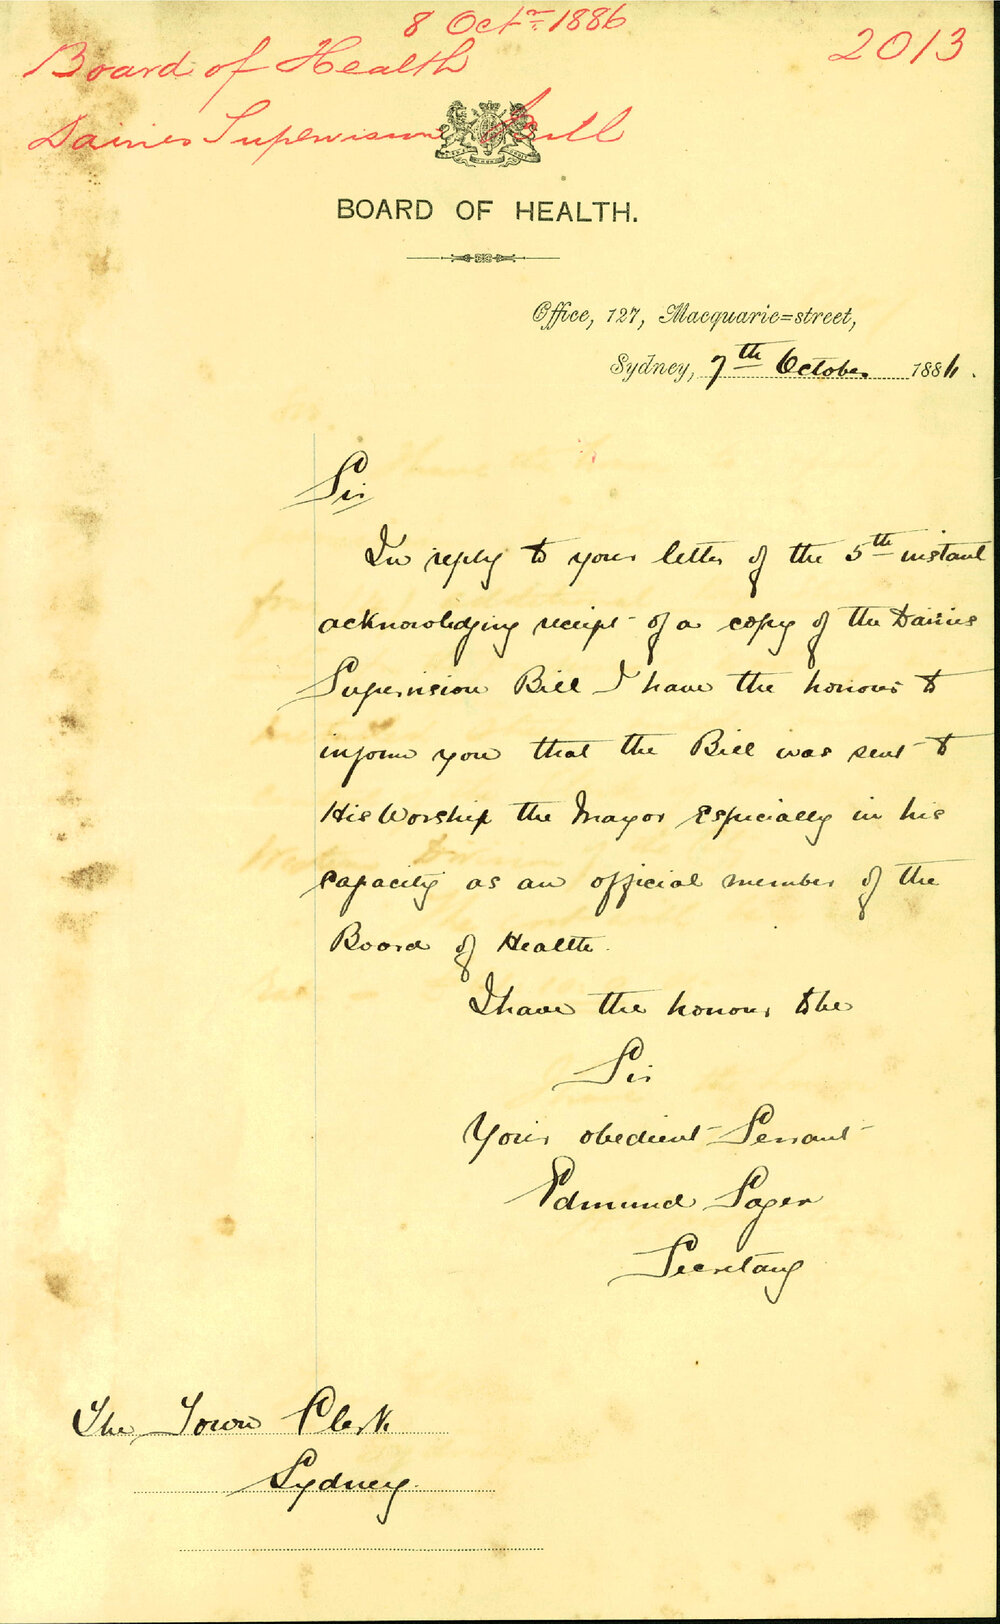 8 Octr. 1886
2013
Board of Health
Dairies Supervision Bill
BOARD OF HEALTH.
Office, 127, Macquarie=street,
Sydney, 7th October 1886.
Sir
In reply to your letter of the 5th instant
acknowledging receipt of a copy of the Dairies
Supervision Bill I have the honour to
inform you that the Bill was sent to
His Worship the Mayor especially in his
capacity as an official member of the
Board of Health.
I have the honour to be
Sir
Your obedient Servant
Edmund Sager
Secretary
The Town Clerk
Sydney.